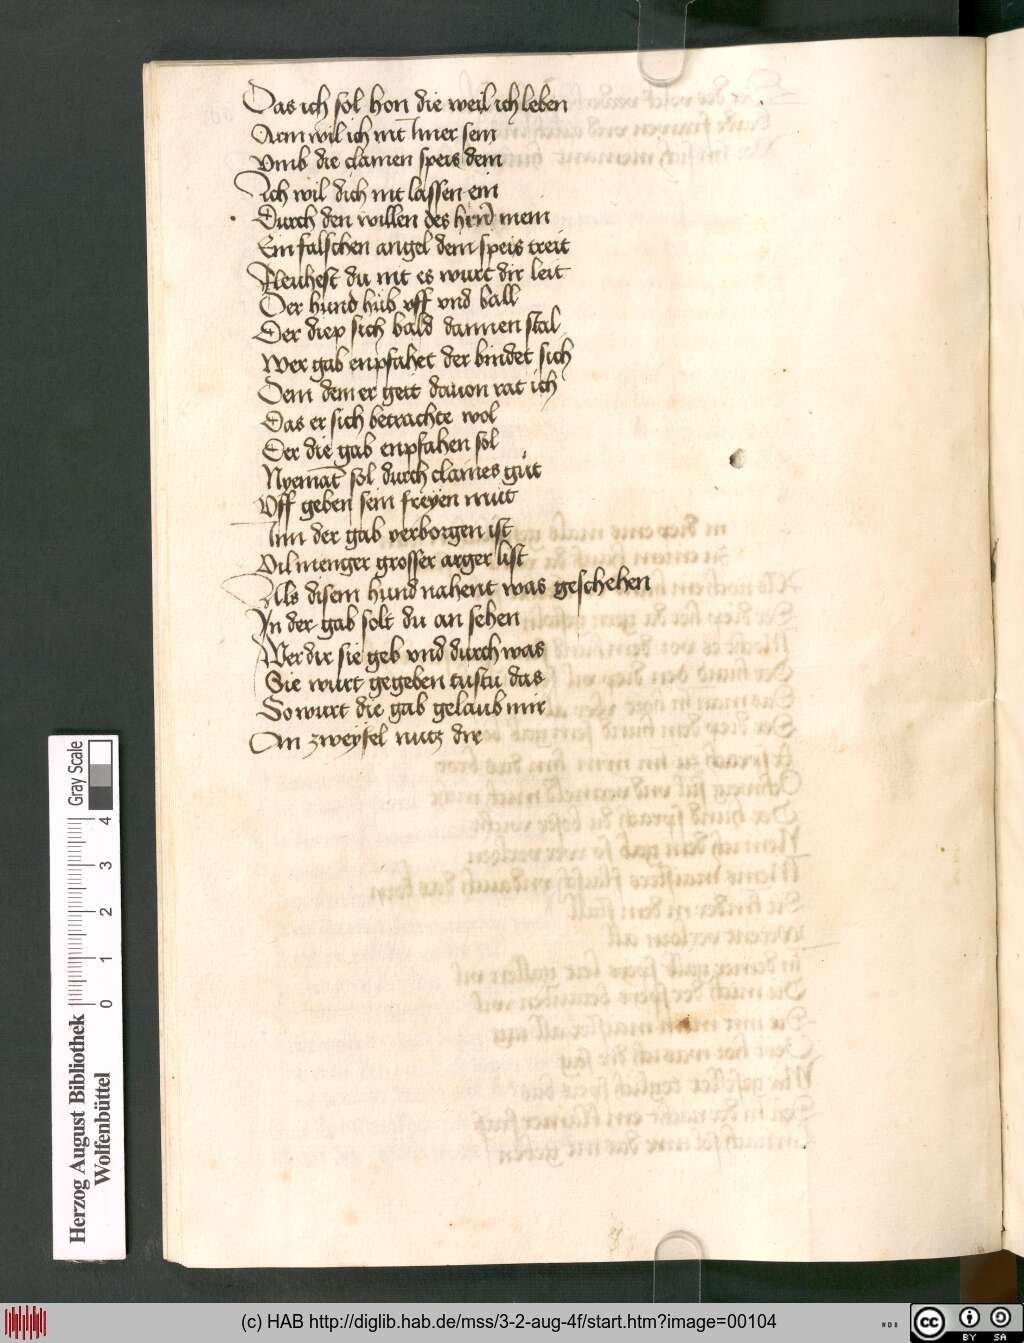 Das ich sol hon die weil ich leben
Arm wil ich nit imer sein
Vmb die clainen speis dein
Ich wil dich nit lassen ein
Durch den willen des hern mein
Ein falschen angel dein speis treit
Fleuhest du nit es wurt dir leit
Der hund hub vff vnd ball
Der diep sich bald dannen stal
Wer gab enpfahet der bindet sich
Dem dem er geit dauon rat ich
Das er sich betrachte wol
Der die gab enpfahen sol
Nyemāt sol durch claines gůt
Vff geben sein freyen mut
Inn der gab verborgen ist
Vil menger grosser arger list
Als disem hund nahent was geschehen
In der gab solt du an sehen
Wer dir sie geb vnd durch was
Sie wurt gegeben tustu das
So wurt die gab gelaub mir
An zweyfel nutz dir
Gray Scale
0 1 2 3 4
Herzog August Bibliothek
Wolfenbüttel
(c) HAB http://diglib.hab.de/mss/3-2-aug-4f/start.htm?image=00104
cc BY SA